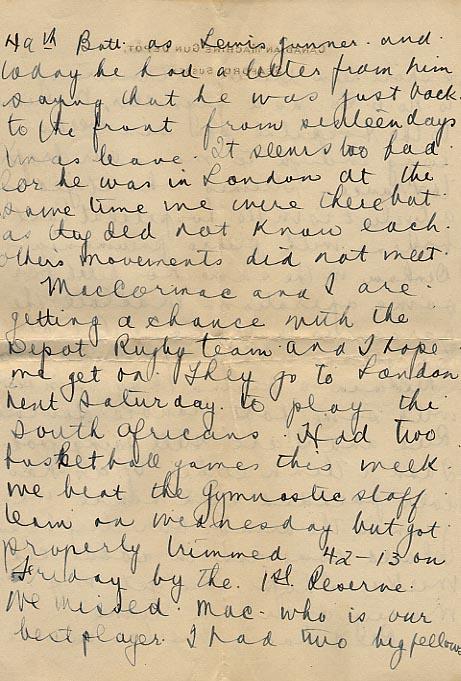 49th Batt. as Lewis gunner. and
today he had a letter from him
saying that he was just back
to the front from sixteen days
Xmas leave. It seems too bad
for he was in London at the
same time we were there but
as they did not know each
others movements did not meet.
MacCormac and I are
getting a chance with the
Depot Rugby team and I hope
we get on. They go to London
next Saturday to play the
South Africans. Had two
basketball games this week.
We beat the Gymnastic staff
team on Wednesday but got
properly trimmed 42-13 on
Friday by the 1st Reserve.
We missed Mac. who is our
best player. I had two big fellows
CANADIAN MACHINE GUN DEPOT